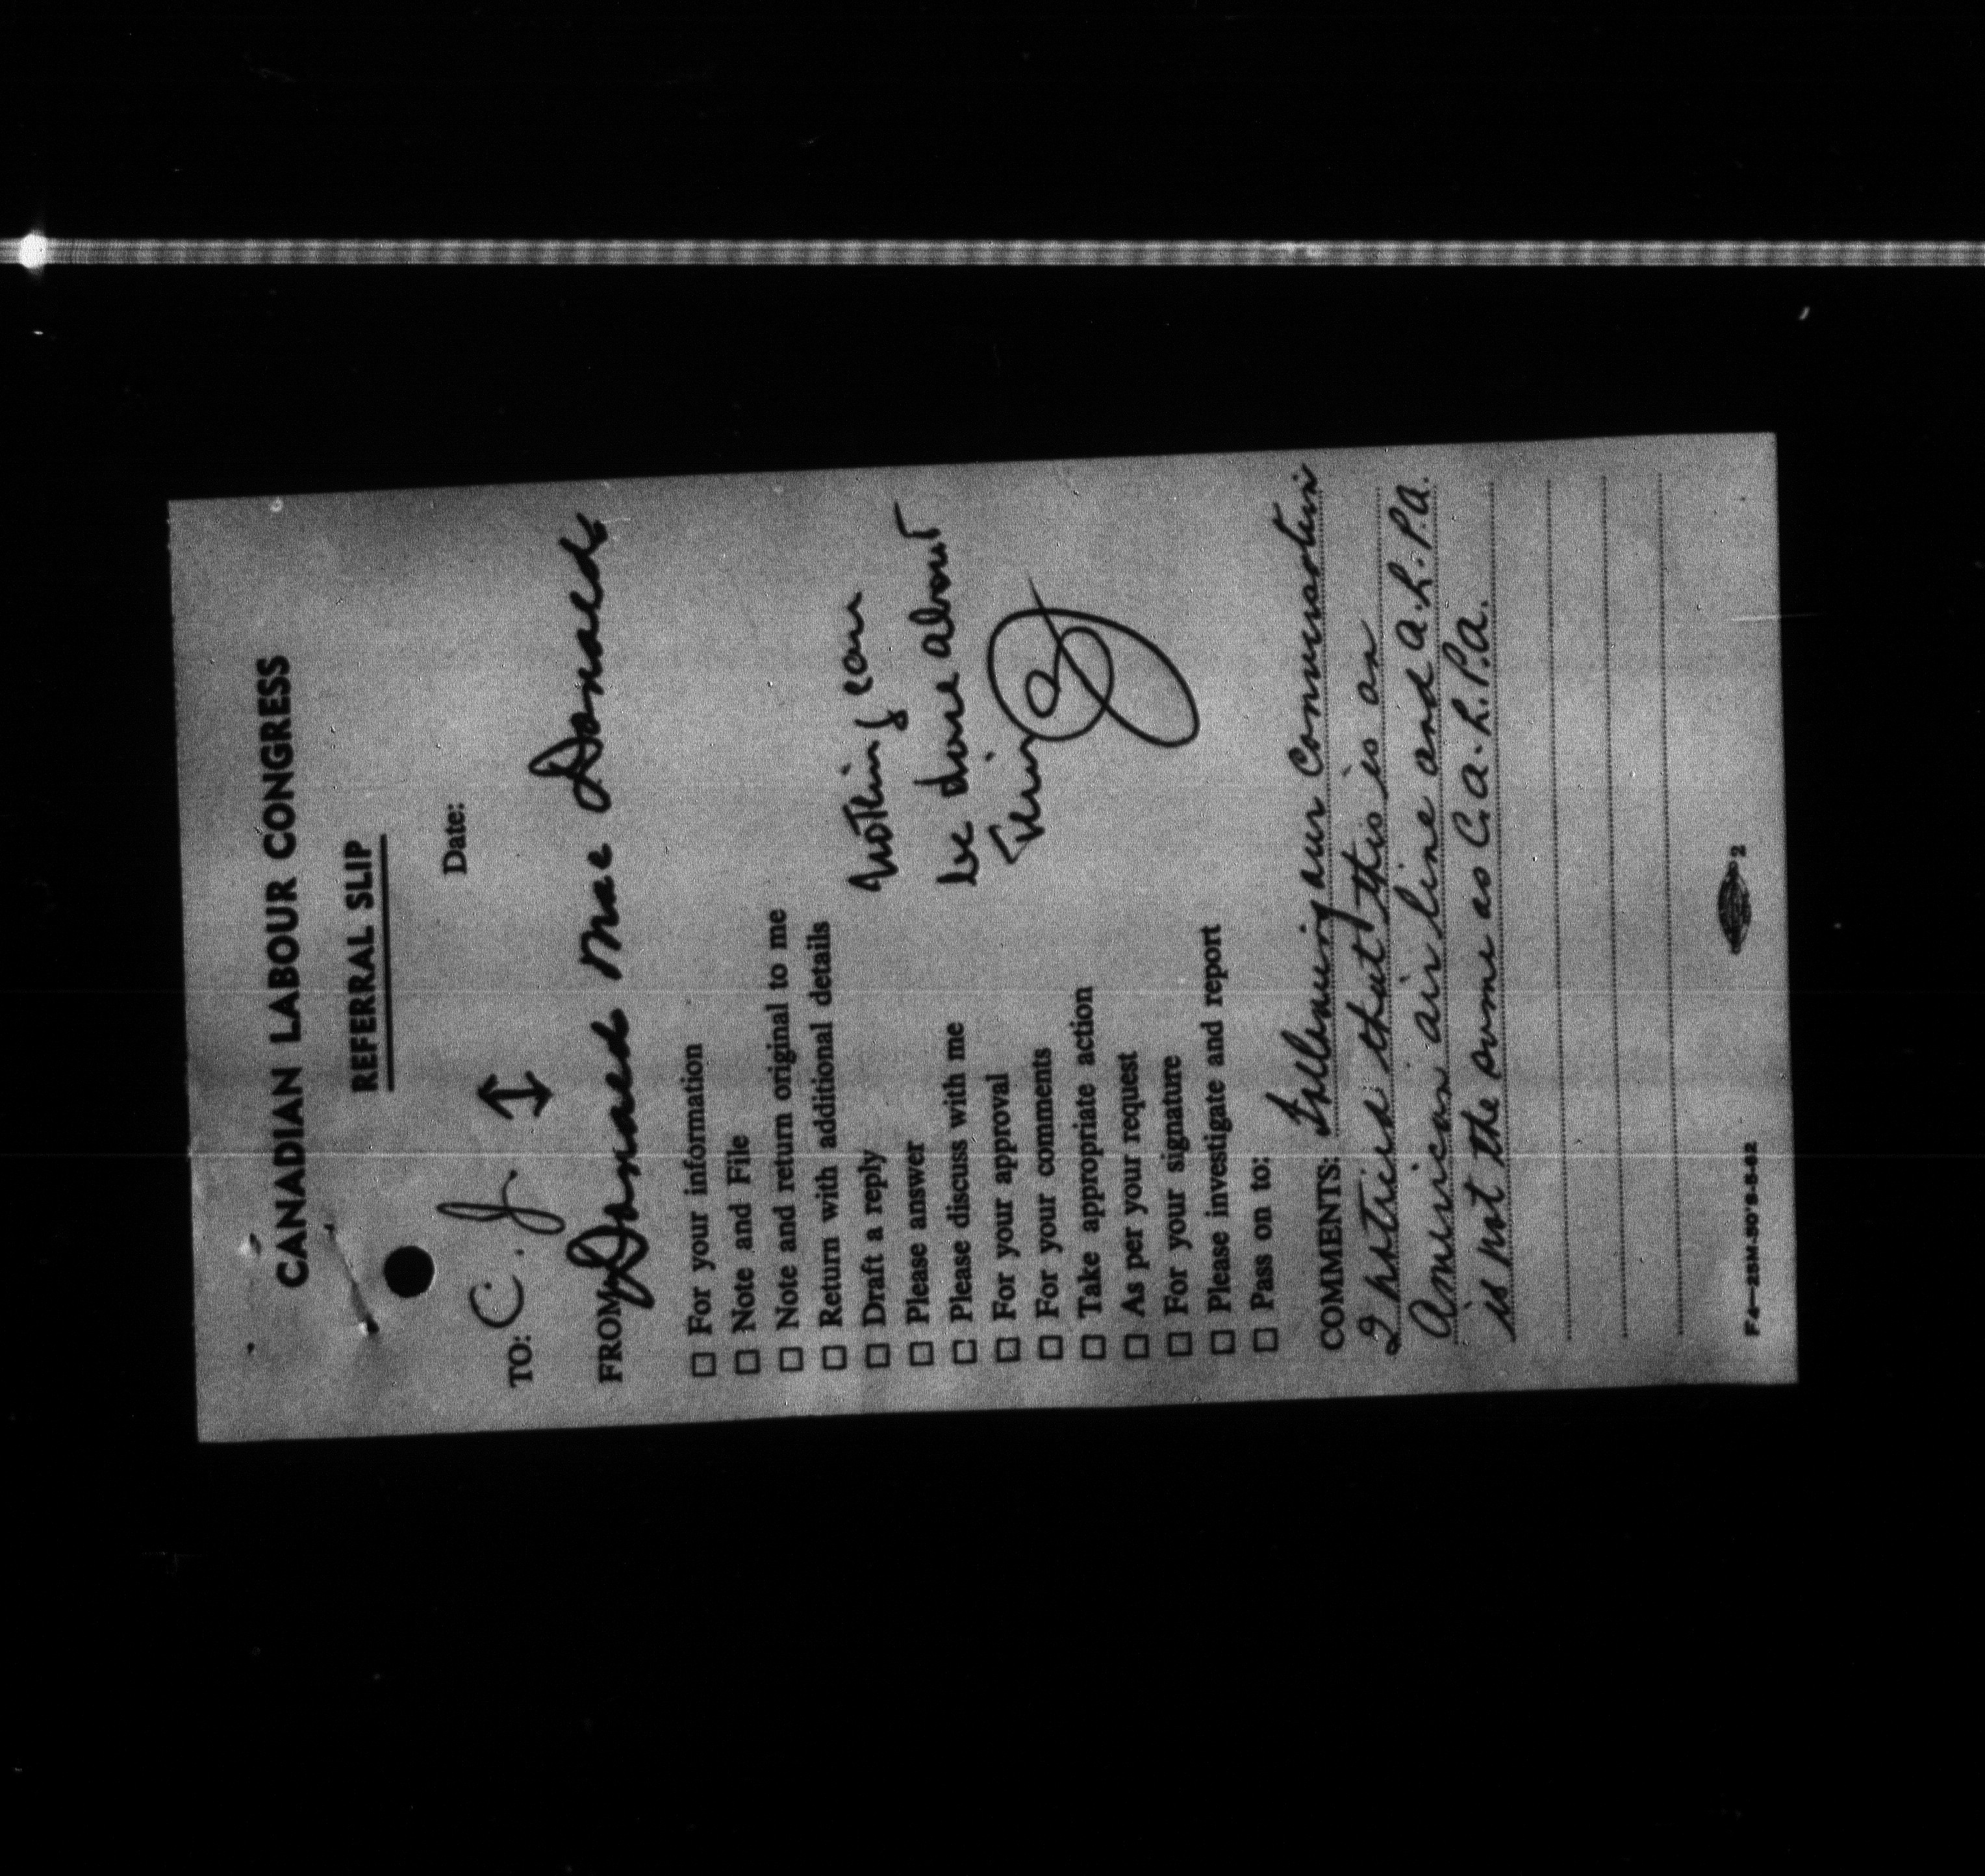 CANADIAN LABOUR CONGRESS
REFERRAL SLIP
Date:
TO: C. J.
FROM: Donald Mac Donald
☐ For your information
☐ Note and File
☐ Note and return original to me
☐ Return with additional details
☐ Draft a reply
☐ Please answer
☐ Please discuss with me
☐ For your approval
☐ For your comments
☐ Take appropriate action
☐ As per your request
☐ For your signature
☐ Please investigate and report
☐ Pass on to:
Nothing can
be done about
this
COMMENTS: Following our conversation
I noticed that this is an
American air line and A.L.P.A.
is not the same as C.A.L.P.A.
F4-25M-30'S-5-62
2